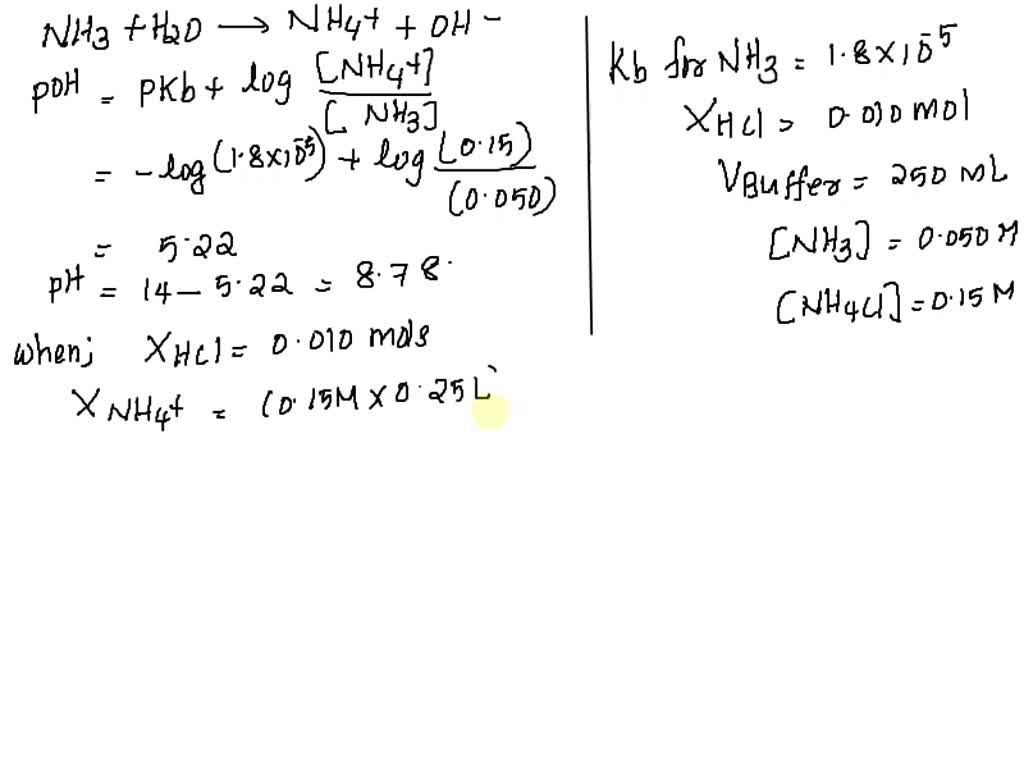 NH3 + H2O → NH4+ + OH-
pOH = PKb + log [NH4+] / [NH3]
= -log(1.8×10^-5) + log (0.15) / (0.050)
= 5.22
pH = 14 - 5.22 = 8.78.
when; XHCl = 0.010 mols
XNH4+ = (0.15M × 0.25L)
Kb for NH3 = 1.8×10^-5
XHCl = 0.010 mol
VBuffer = 250 mL
[NH3] = 0.050 M
[NH4Cl] = 0.15 M